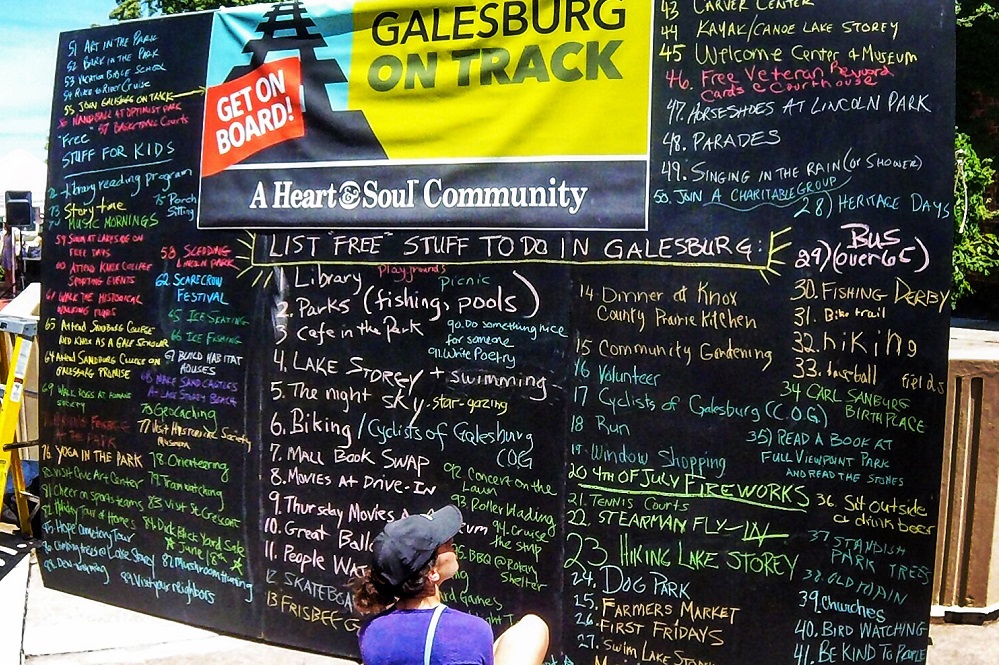 GALESBURG
ON TRACK
GET ON
BOARD!
A Heart & Soul Community
LIST "FREE" STUFF TO DO IN GALESBURG:
51 ART IN THE PARK
52 BARK IN THE PARK
53 VACATION BIBLE SCHOOL
54 RIVER TO RIVER CRUISE
55 JOIN GALESBURG ON TRACK
56 HANDBALL AT OPTIMIST PARK
57 Basketball Courts
"Free"
STUFF FOR KIDS
72 Library reading program
73 Story time
75 Porch
Sitting
74 MUSIC MORNINGS
59 SWIM AT LAKESIDE ON
FREE DAYS
58 SLEDDING
LINCOLN PARK
60 ATTEND KNOX COLLEGE
SPORTING EVENTS
62 SCARECROW
FESTIVAL
61 WALK THE HISTORICAL
WALKING TOURS
65 ICE SKATING
66 ICE FISHING
65 Attend SANDBURG COLLEGE
AND KNOX AS A GALE SCHOLAR
64 Attend SANDBURG COLLEGE ON
GALESBURG PROMISE
67 BUILD HABITAT
HOUSES
68 MAKE SAND CASTLES
AT LAKE STOREY BEACH
69 WALK DOGS AT HUMANE
SOCIETY
75 Geocaching
AT THE PARK
77 Visit Historical Society
Museum
76 YOGA IN THE PARK
78. Orienteering
80. Visit Civic Art Center
79. Trainwatching
81 Cheer on sports teams
83 Visit St Crescent
82 Holiday Tour of Homes
84 Dick Block Yard Sale
June 18th
85 Hope Cemetery Tour
86 Climbing trees @ Lake Storey
87 Mushroom hunting
88. Day dreaming
89 Visit your neighbors
1. Library
playgrounds
picnic
2. Parks (fishing, pools)
3 Cafe in the Park
90. Do something nice
for someone
91. Write Poetry
4. LAKE STOREY + swimming
5. The night SKY. star-gazing
6. Biking / Cyclists of Galesburg
COG
7. MALL BOOK SWAP
8. MOVIES AT DRIVE-IN
92. Concert on the
Lawn
9. Thursday Movies
93. Roller blading
10. Great
94. Cruise
the strip
11. People
BBQ @ Rotary
Shelter
12 SKATEBOA
Games
13 FRISBEE G
14 Dinner at Knox
County Prairie Kitchen
15 Community Gardening
16 Volunteer
17 Cyclists of Galesburg (C.O.G.)
18 Run
19 Window Shopping
20 4TH OF JULY FIREWORKS
21. TENNIS Courts
22. STEARMAN FLY-IN
23 HIKING LAKE STOREY
24. DOG PARK
25. FARMERS MARKET
26. FIRST FRIDAYS
27. SWIM LAKE STOREY
43 CARVER CENTER
44 KAYAK/CANOE LAKE STOREY
45 Welcome Center & Museum
46. Free Veteran Reward
Cards @ Courthouse
47. HORSESHOES AT LINCOLN PARK
48. PARADES
49. SINGING IN THE RAIN (or SHOWER)
50. JOIN A CHARITABLE GROUP
28) HERITAGE DAYS
29) BUS
(over 65)
30. FISHING DERBY
31. Bike trail
32. hiKing
33. baseball fields
34 CARL SANBURG
BIRTHPLACE
35) READ A BOOK AT
FULL VIEWPOINT PARK
AND READ THE STONES
36. Sit outside
& drink beer
37 STANDISH
PARK TREES
38. OLD MAIN
39. Churches
40. BIRD WATCHING
41. BE KIND TO PEOPLE